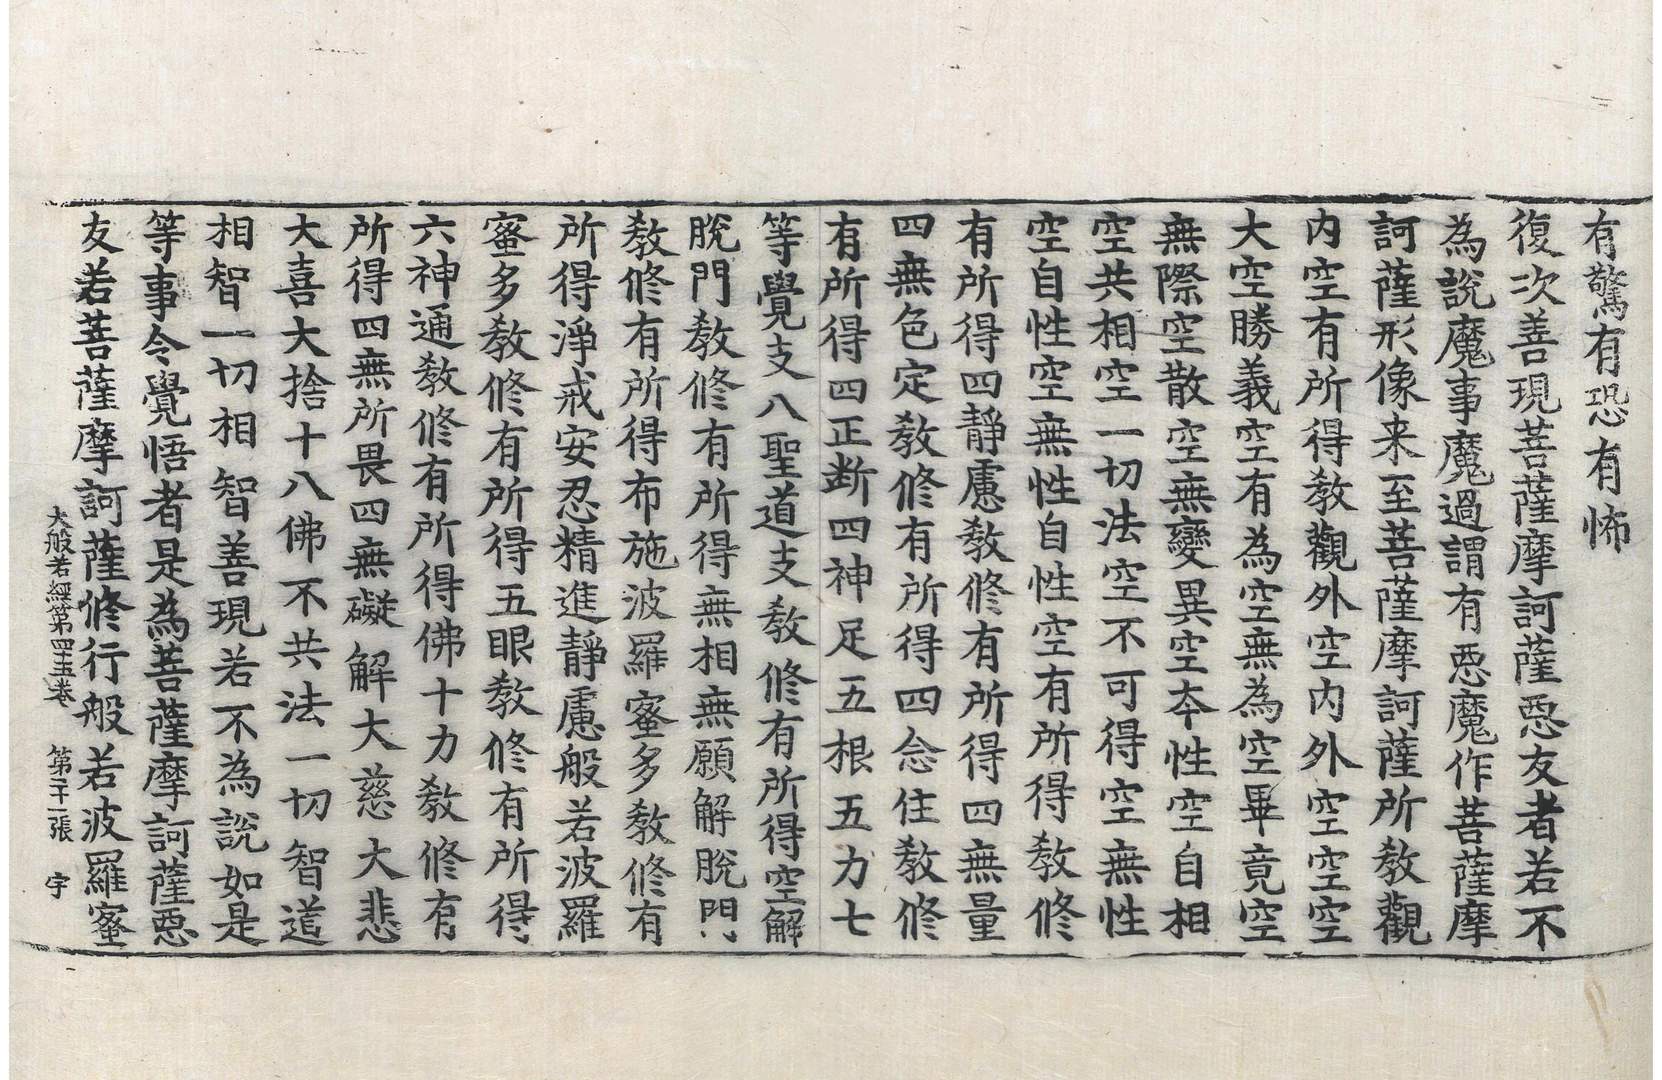 有驚有恐有怖
復次善現菩薩摩訶薩惡友者若不
為說魔事魔過謂有惡魔作菩薩摩
訶薩形像来至菩薩摩訶薩所教觀
内空有所得教觀外空内外空空空
大空勝義空有為空無為空畢竟空
無際空散空無變異空本性空自相
空共相空一切法空不可得空無性
空自性空無性自性空有所得教修
有所得四靜慮教修有所得四無量
四無色定教修有所得四念住教修
有所得四正断四神足五根五力七
等覺支八聖道支教修有所得空解
脫門教修有所得無相無願解脫門
教修有所得布施波羅蜜多教修有
所得淨戒安忍精進靜慮般若波羅
蜜多教修有所得五眼教修有所得
六神通教修有所得佛十力教修有
所得四無所畏四無礙解大慈大悲
大喜大捨十八佛不共法一切智道
相智一切相智善現若不為說如是
等事令覺悟者是為菩薩摩訶薩惡
友若菩薩摩訶薩修行般若波羅蜜
大般若經第四十五卷 第二十一張 宇